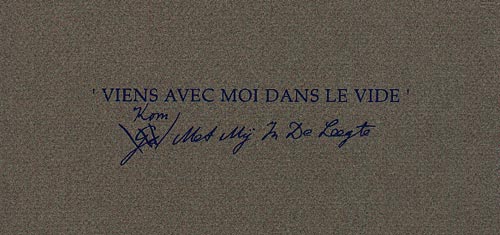 ' VIENS AVEC MOI DANS LE VIDE '
Kom
Met Mij In De Leegte